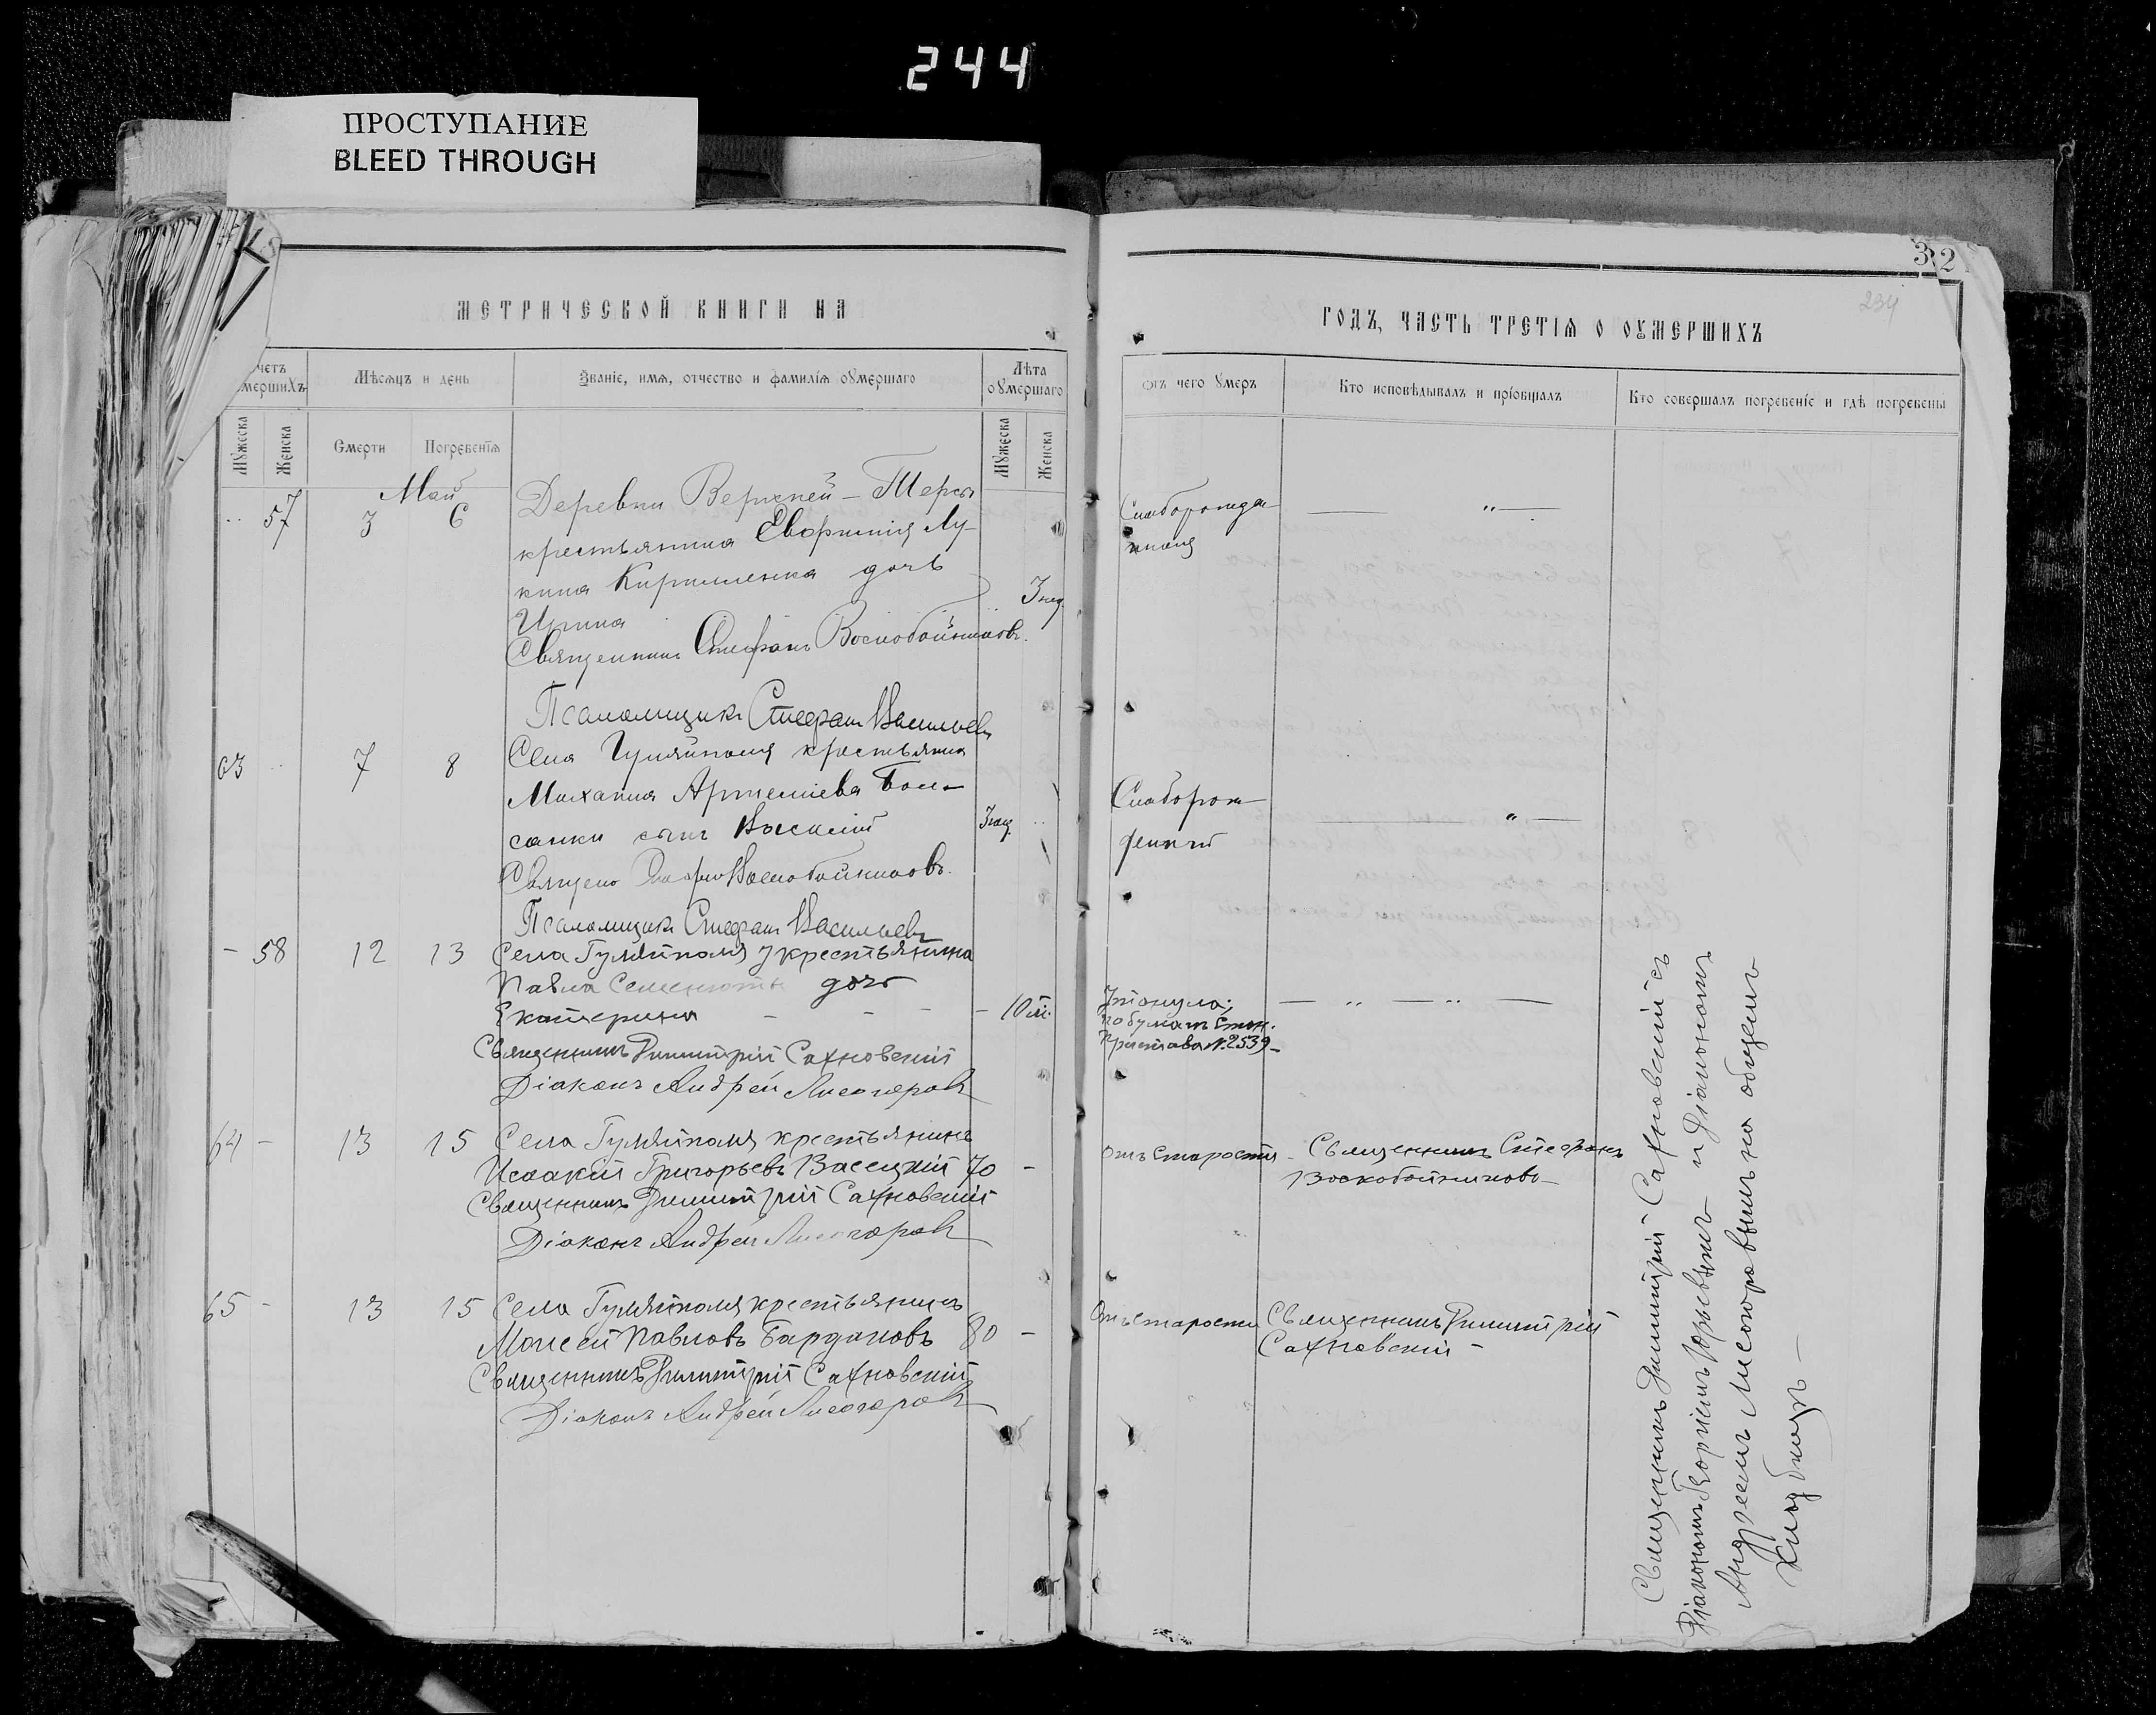 244
ПРОСТУПАНИЕ
BLEED THROUGH
МЕТРИЧЕСКОЙ КНИГИ НА
четъ
мершихъ
Мѣсяцъ и день
Званіе, имя, отчество и фамилія оумершаго
Лѣта
оумершаго
Мужеска
Женска
Смерти
Погребенія
Мужеска
Женска
Май
57 3 6 Деревни Верхней-Терсы
крестьянина Лу-
кина Кириленка дочь
Ирина 3 нед.
Священникъ Стефанъ Воскобойниковъ.
Псаломщикъ Стефанъ Васильевъ
63 7 8 Села Гуляйполя крестьянина
Михаила Артемiева
сынъ Василій 3 нед.
Воскобойниковъ
Псаломщикъ Стефанъ Васильевъ
- 58 12 13 Села Гуляйполя у крестьянина
Павла дочь
Екатерина - - - - 10 м.
Священникъ Димитрій Сахновскій
Діаконъ Андрей Лисогоровъ
64 - 13 15 Села Гуляйполя крестьянинъ
Исаакій Григорьевъ Васецкій 70 -
Священникъ Димитрій Сахновскій
Діаконъ Андрей Лисогоровъ
65 - 13 15 Села Гуляйполя крестьянинъ
Моисей Павловъ Бардаковъ 80 -
Священникъ Димитрій Сахновскій
Діаконъ Андрей Лисогоровъ
32
234
ГОДЪ, ЧАСТЬ ТРЕТІЯ О ОУМЕРШИХЪ
отъ чего умеръ
Кто исповѣдывалъ и пріобщалъ
Кто совершалъ погребеніе и гдѣ погребены
Слаборожде-
нная
Слаборож-
денный
Утонула;
по бумагѣ Стан.
Пристава №2539-
отъ старости - Священникъ Стефанъ
Воскобойниковъ-
Отъ старости Священникъ Димитрій
Сахновскій -
Священникъ Димитрій Сахновскій съ
Діакономъ Юрьевымъ и Діакономъ
Андреемъ Лисогоровымъ на общемъ
кладбищѣ -